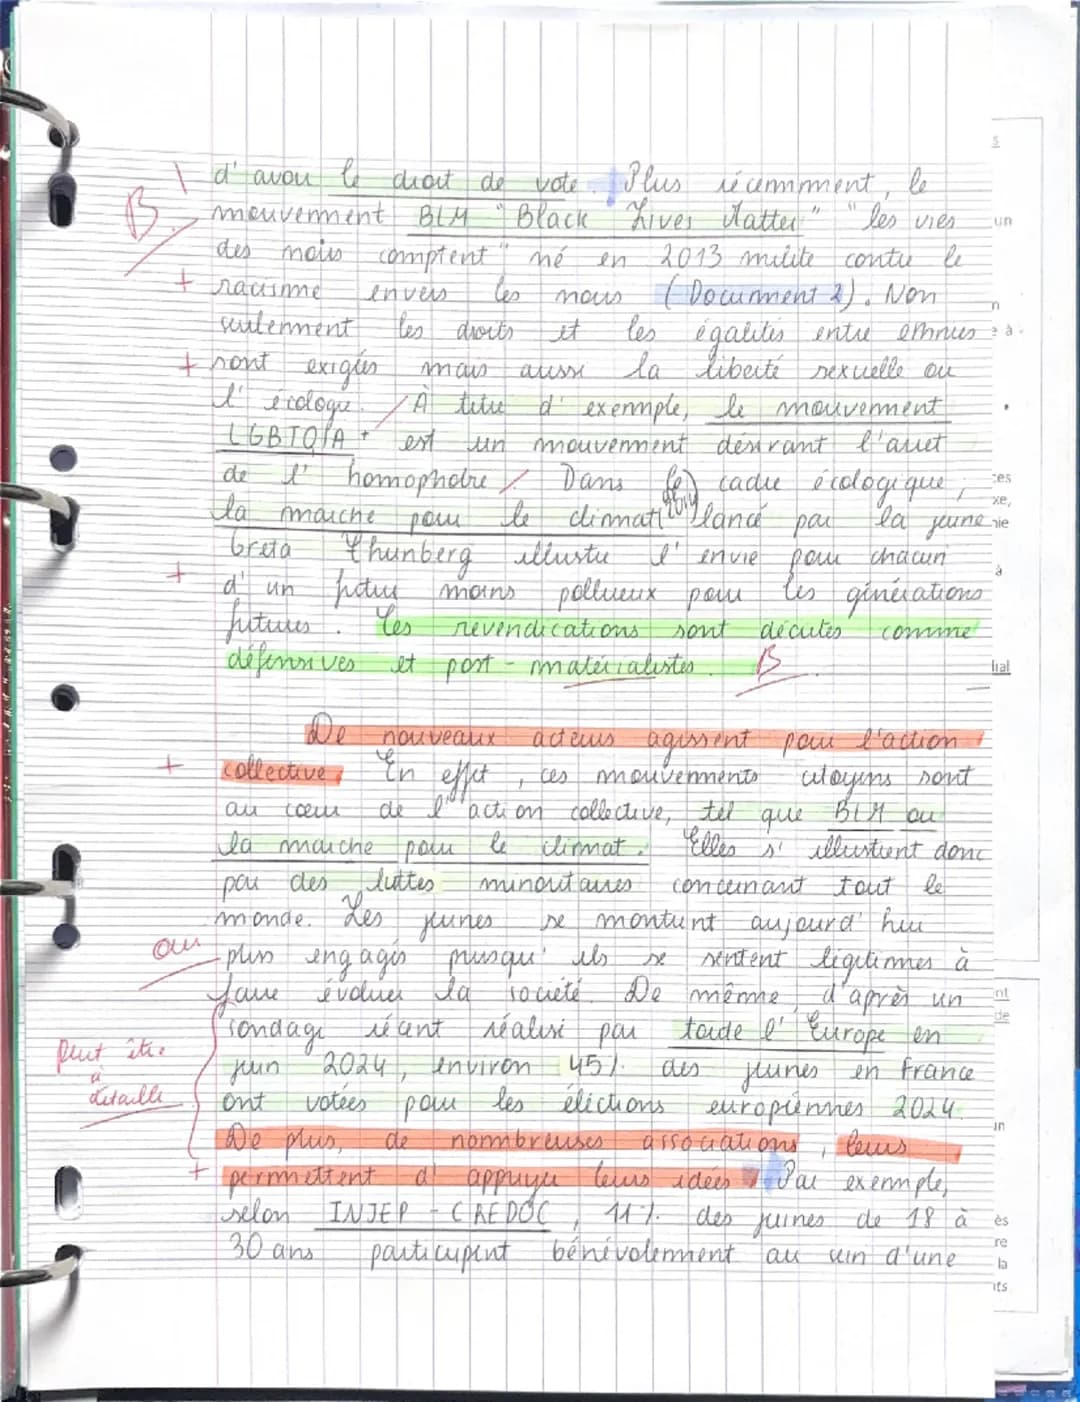 d'avoir le droit de vote. Plus récemmment, le
B. mouvement BLM "Black Lives Matter" "les vies
des noirs comptent" né en 2013 milite contre le
+ racisme envers les noirs (Document 2). Non
seulement les droits et les égalités entre
+ sont exigées mais aussi la liberté sexuelle ou
l'écologie. / À titre d'exemple, le mouvement
LGBTQIA+ est un mouvement désirant l'arret
de l'homophobie / Dans le cadre écologique,
la marche pour le climat 2019 lancé par la jeune
Greta Thunberg illustre l'envie pour chacun
+ d'un futur moins pollueux pour les générations
futures. Les revendications sont décrites comme
défensives et post-matérialistes. B
De nouveaux acteurs agissent pour l'action
+ collective. En effet, ces mouvements citoyens sont
au cœur de l'action collective, tel que BLM ou
la marche pour le climat. Elles s'illustrent donc
par des luttes minoritaires concernant tout le
monde. Les jeunes se montrent aujourd'hui
oui plus engagés puisqu'ils se sentent légitimes à
faire évoluer la société. De même, d'après un
sondage récent réalisé par toute l'Europe en
Peut être à détaillé
juin 2024, environ 45% des jeunes en France
ont votées pour les élections européennes 2024.
De plus, de nombreuses associations, leurs
+ permettent d'appuyer leurs idées. Par exemple,
selon INJEP - CREDOC, 11% des jeunes de 18 à
30 ans participent bénévolement au sein d'une